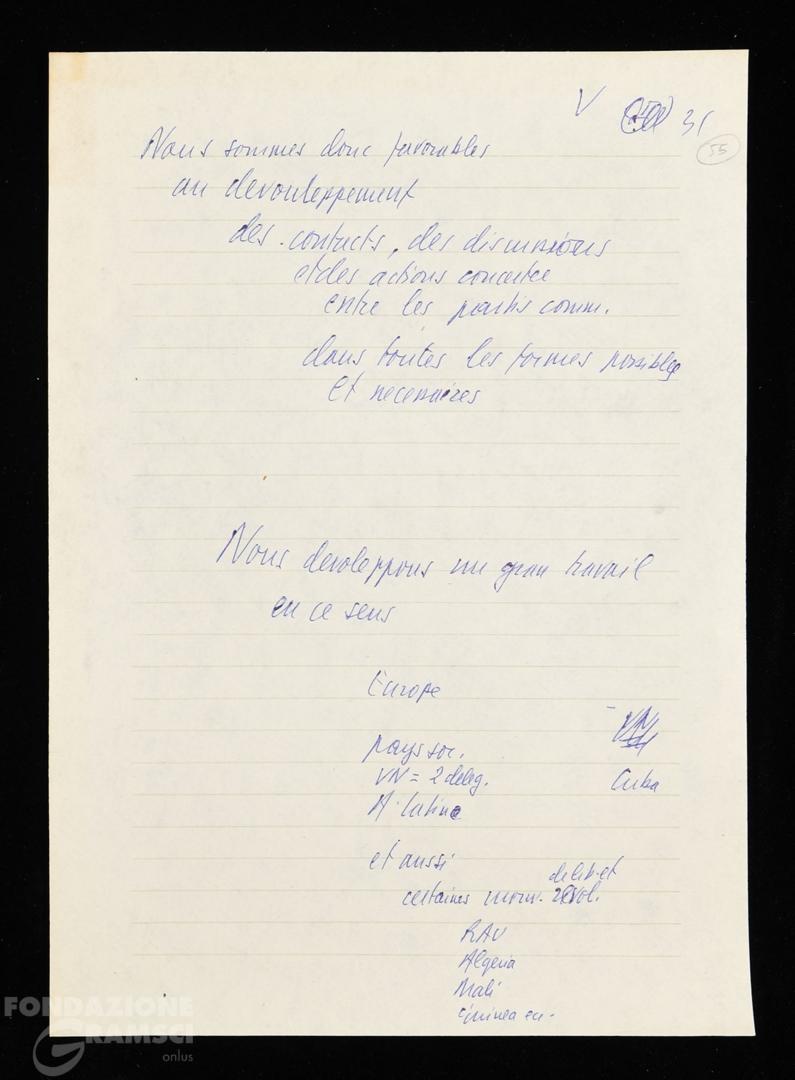 V 31
55
Nous sommes donc favorables
au devouleppement
des contacts, des discussions
et des actions concertée
entre les partis comm.
dans toutes les formes possibles
et necessaires
Nous devoleppons un gran travail
en ce sens
Europe
pays soc.
VN = 2 deleg.
Cuba
A. latine
et aussi
de lib. et
certaines mouv. revol.
RAU
Algeria
Mali
Guinea
FONDAZIONE
GRAMSCI
onlus